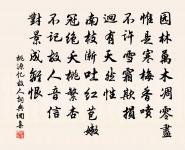 園林萬木凋零盡
惟是寒梅香噴
不許雪霜欺損
迥有天然性
南枝漸吐紅苞嫩
冠絕夭桃繁杏
不記故人音信
對景成離恨
桃源憶故人